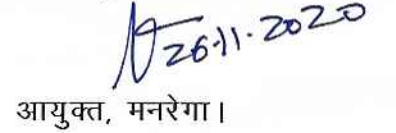 26.11.2020
आयुक्त, मनरेगा।